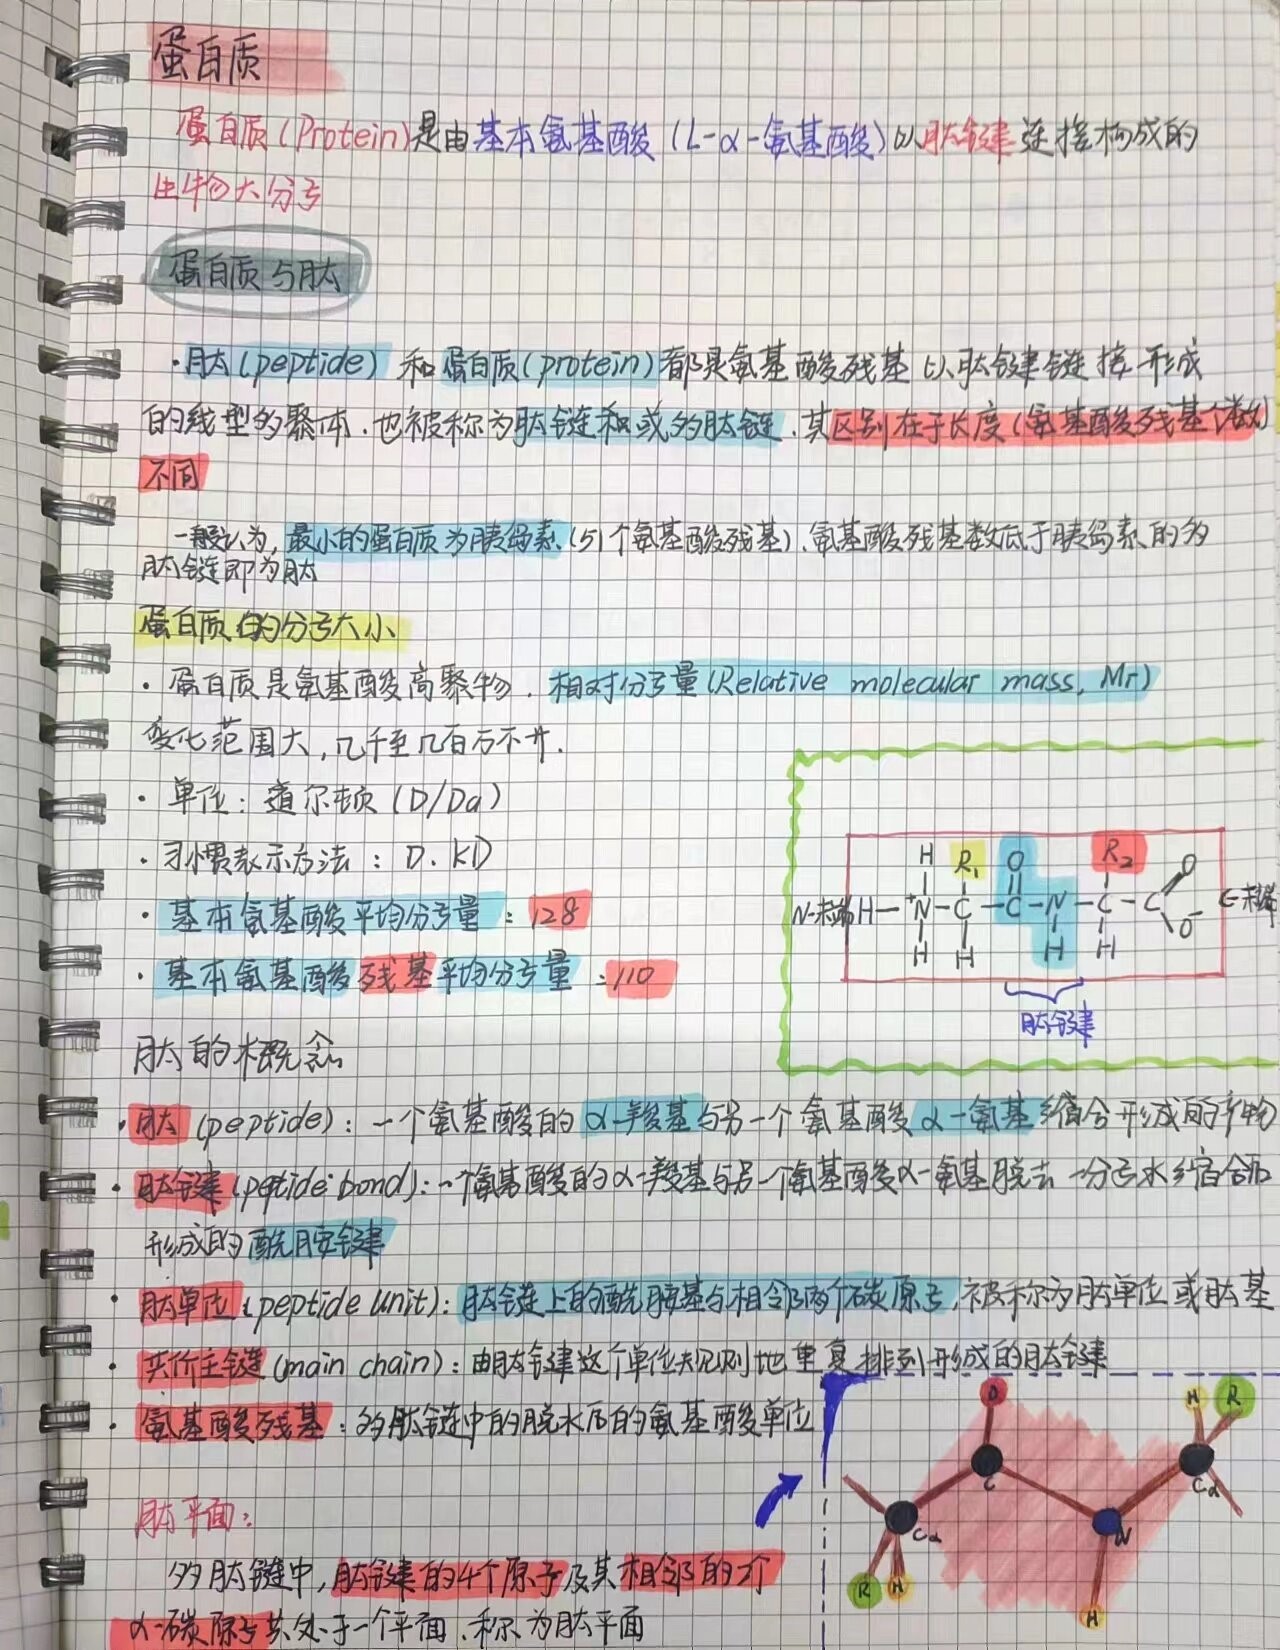 蛋白质
蛋白质(Protein)是由基本氨基酸(L-α-氨基酸)以肽键连接构成的
生物大分子
蛋白质与肽
·肽(peptide)和蛋白质(protein)都是氨基酸残基以肽键链接形成
的线型多聚体.也被称为肽链和或多肽链.其区别在于长度(氨基酸残基个数)
不同
一般认为,最小的蛋白质为胰岛素(51个氨基酸残基).氨基酸残基数低于胰岛素的多
肽链即为肽
蛋白质的分子大小
·蛋白质是氨基酸高聚物.相对分子量(Relative molecular mass, Mr)
变化范围大,几千至几百万不等.
·单位:道尔顿(D/Da)
·习惯表示方法:D.KD
·基本氨基酸平均分子量:128
·基本氨基酸残基平均分子量:110
H R₁ O R₂ O
N-末端 H-⁺N-C-C-N-C-C O⁻ C-末端
H H H H
肽键
肽的概念
·肽(peptide):一个氨基酸的α-羧基与另一个氨基酸α-氨基缩合形成的产物
·肽键(peptide bond):一个氨基酸的α-羧基与另一个氨基酸α-氨基脱去一分子水缩合后
形成的酰胺键
·肽单位(peptide unit):肽链上的酰胺基与相邻两个碳原子,被称为肽单位或肽基
·共价主链(main chain):由肽键这个单位规则地重复排列形成的肽键
·氨基酸残基:多肽链中的脱水后的氨基酸单位
O H R
C Cα
Cα N
R H H
肽平面:
多肽链中,肽键的4个原子及其相邻的2个
α-碳原子共处于一个平面.称为肽平面